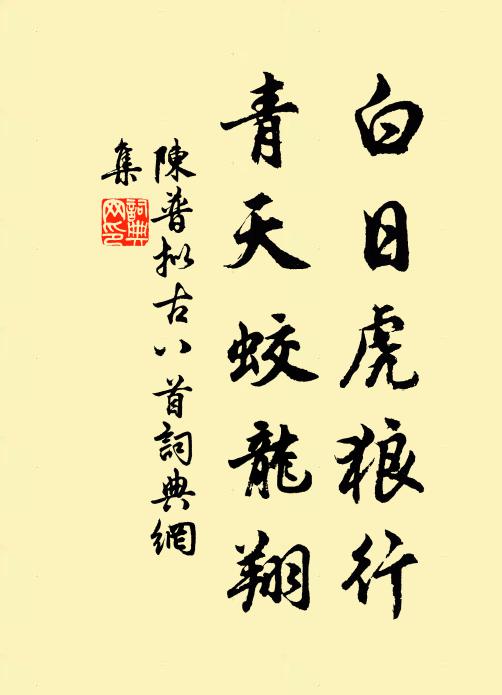 白日虎狼行
青天蛟龍翔
陳普拟古八首詞典網
集
詞典網印